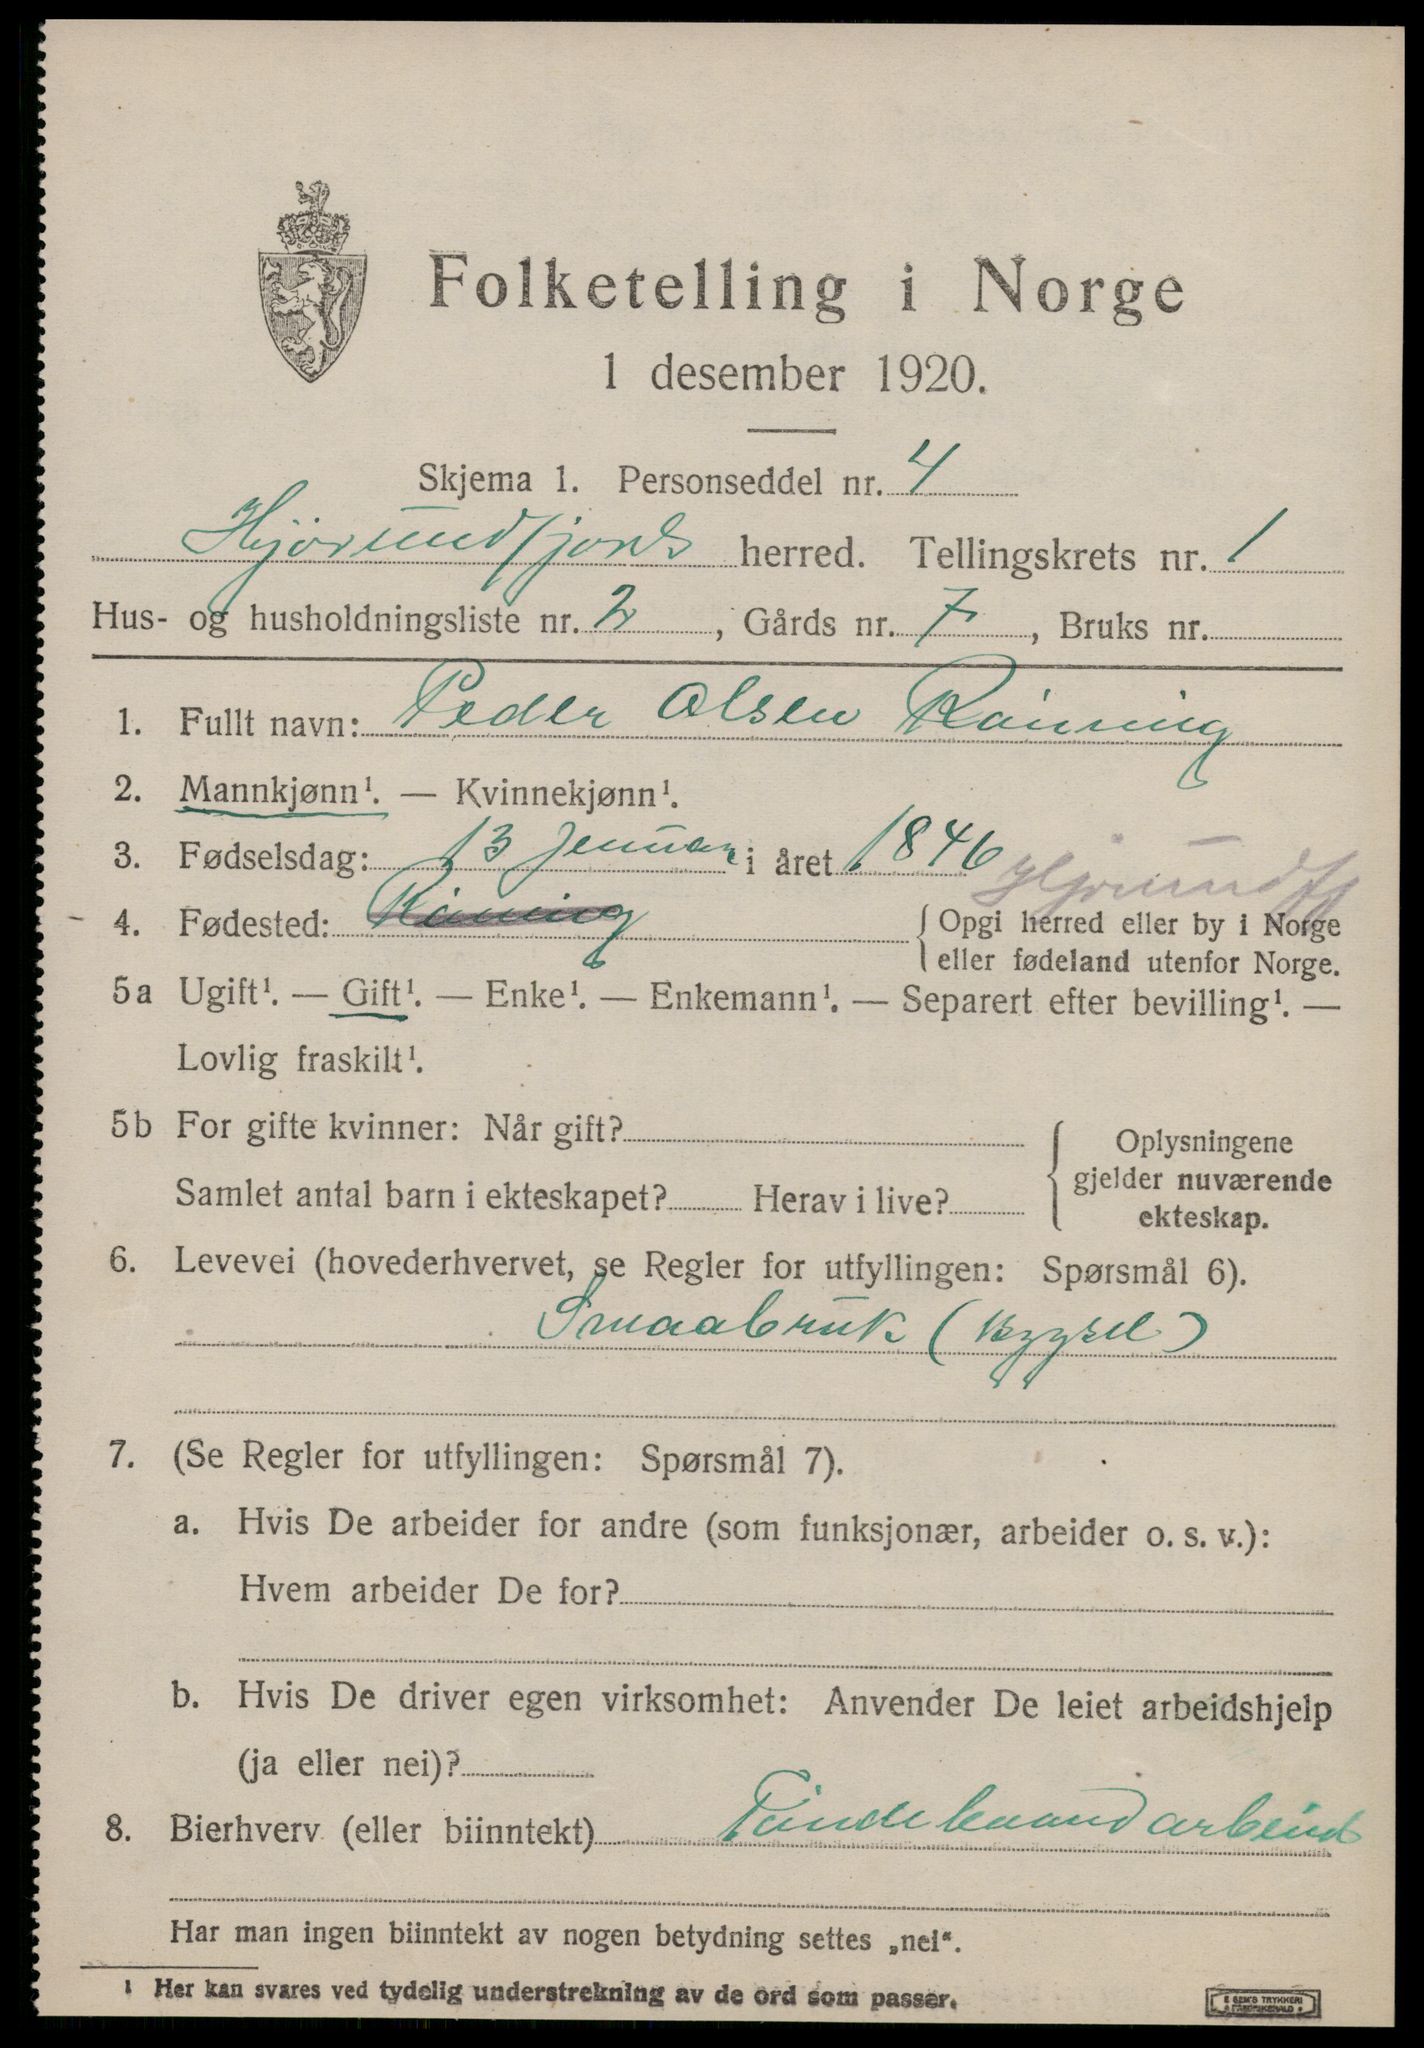 Folketelling i Norge
1 desember 1920.
Skjema 1. Personseddel nr. 4
Hjørundfjords herred. Tellingskrets nr. 1
Hus- og husholdningsliste nr. 2, Gårds nr. 7, Bruks nr.
1. Fullt navn: Peder Olsen Råning
2. Mannkjønn¹. — Kvinnekjønn¹.
3. Fødselsdag: 13 Jenuar i året 1846
Hjørundfj
4. Fødested: Råning { Opgi herred eller by i Norge
eller fødeland utenfor Norge.
5a Ugift¹. — Gift¹. — Enke¹. — Enkemann¹. — Separert efter bevilling¹. —
Lovlig fraskilt¹.
5b For gifte kvinner: Når gift?
Samlet antal barn i ekteskapet? Herav i live?
{ Oplysningene
gjelder nuværende
ekteskap.
6. Levevei (hovederhvervet, se Regler for utfyllingen: Spørsmål 6).
Smaabruk
7. (Se Regler for utfyllingen: Spørsmål 7).
a. Hvis De arbeider for andre (som funksjonær, arbeider o. s. v.):
Hvem arbeider De for?
b. Hvis De driver egen virksomhet: Anvender De leiet arbeidshjelp
(ja eller nei)?
8. Bierhverv (eller biinntekt) Tøndebaand arbeid
Har man ingen biinntekt av nogen betydning settes „nei“.
1 Her kan svares ved tydelig understrekning av de ord som passer.